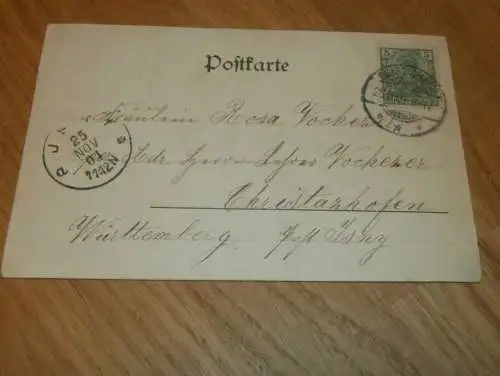 Postkarte
5 5
Fräulein Rosa Vochezer
Adr. Herrn Lehrer Vochezer
Christazhofen
Württemberg Post Isny
25
NOV
01
1112N